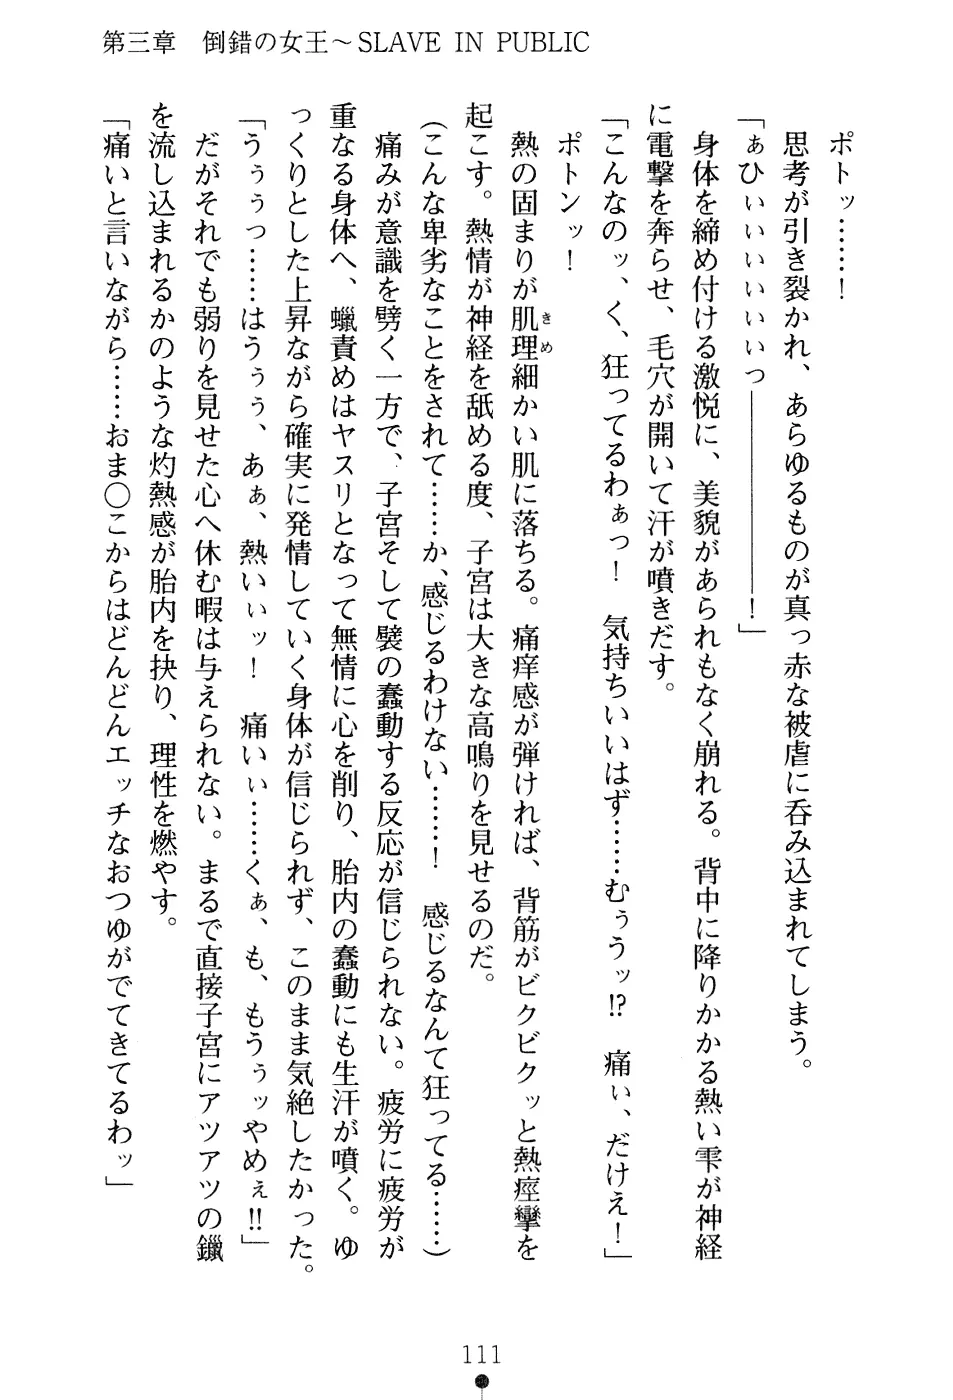 第三章　倒錯の女王～SLAVE IN PUBLIC
ポトッ……！
思考が引き裂かれ、あらゆるものが真っ赤な被虐に呑み込まれてしまう。
「ぁひぃぃぃぃぃぃっ――――――！」
身体を締め付ける激悦に、美貌があられもなく崩れる。背中に降りかかる熱い雫が神経
に電撃を奔らせ、毛穴が開いて汗が噴きだす。
「こんなのッ、く、狂ってるわぁっ！　気持ちいいはず……むぅうッ!?　痛ぃ、だけえ！」
ポトンッ！
熱の固まりが肌理細かい肌に落ちる。痛痒感が弾ければ、背筋がビクビクッと熱痙攣を
起こす。熱情が神経を舐める度、子宮は大きな高鳴りを見せるのだ。
（こんな卑劣なことをされて……か、感じるわけない……！　感じるなんて狂ってる……）
痛みが意識を劈く一方で、子宮そして襞の蠢動する反応が信じられない。疲労に疲労が
重なる身体へ、蠟責めはヤスリとなって無情に心を削り、胎内の蠢動にも生汗が噴く。ゆ
っくりとした上昇ながら確実に発情していく身体が信じられず、このまま気絶したかった。
「うぅぅっ……はうぅぅ、あぁ、熱いぃッ！　痛いぃ……くぁ、も、もうぅッやめぇ!!」
だがそれでも弱りを見せた心へ休む暇は与えられない。まるで直接子宮にアツアツの鑞
を流し込まれるかのような灼熱感が胎内を抉り、理性を燃やす。
「痛いと言いながら……おま〇こからはどんどんエッチなおつゆがでてきてるわッ」
きめ
111